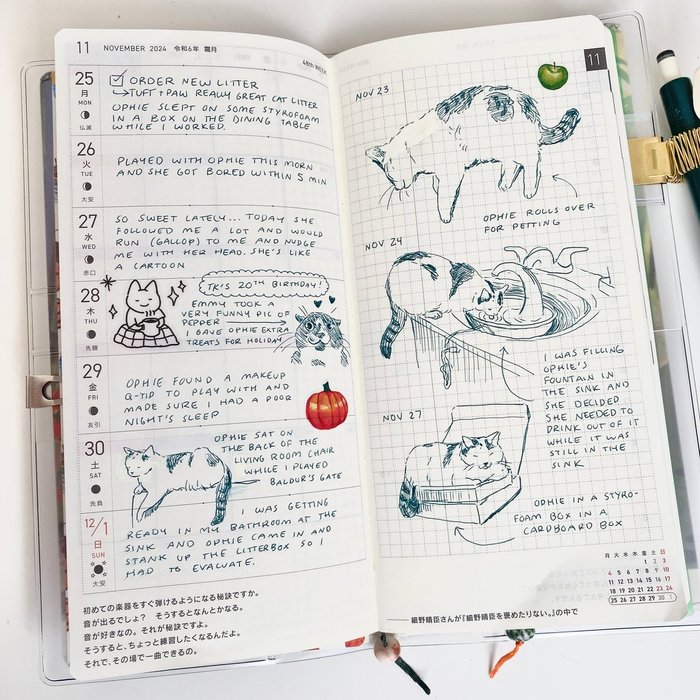 11 NOVEMBER 2024 令和6年 霜月
48th WEEK
25
月
MON
仏滅
ORDER NEW LITTER
→TUFT + PAW REALLY GREAT CAT LITTER
OPHIE SLEPT ON SOME STYROFOAM
IN A BOX ON THE DINING TABLE
WHILE I WORKED.
26
火
TUE
大安
PLAYED WITH OPHIE THIS MORN
AND SHE GOT BORED WITHIN 5 MIN
27
水
WED
赤口
SO SWEET LATELY... TODAY SHE
FOLLOWED ME A LOT AND WOULD
RUN (GALLOP) TO ME AND NUDGE
ME WITH HER HEAD. SHE'S LIKE
A CARTOON
28
木
THU
先勝
TK'S 20TH BIRTHDAY!
EMMY TOOK A
VERY FUNNY PIC OF
PEPPER
I GAVE OPHIE EXTRA
TREATS FOR HOLIDAY
29
金
FRI
友引
OPHIE FOUND A MAKEUP
Q-TIP TO PLAY WITH AND
MADE SURE I HAD A POOR
NIGHT'S SLEEP
30
土
SAT
先負
OPHIE SAT ON
THE BACK OF THE
LIVING ROOM CHAIR
WHILE I PLAYED
BALDUR'S GATE
12/1
日
SUN
大安
I WAS GETTING
READY IN MY BATHROOM AT THE
SINK AND OPHIE CAME IN AND
STANK UP THE LITTERBOX SO I
HAD TO EVACUATE.
初めての楽器をすぐ弾けるようになる秘訣ですか。
音が出るでしょ? そうするとなんとかなる。
音が好きなの。それが秘訣ですよ。
そうすると、ちょっと練習したくなるんだよ。
それで、その場で一曲できるの。
11
NOV 23
OPHIE ROLLS OVER
FOR PETTING
NOV 24
I WAS FILLING
OPHIE'S
FOUNTAIN IN
THE SINK AND
SHE DECIDED
SHE NEEDED TO
DRINK OUT OF IT
WHILE IT WAS
STILL IN THE
SINK
NOV 27
OPHIE IN A STYRO-
FOAM BOX IN A
CARDBOARD BOX
月 火 水 木 金 土 日
1 2 3
4 5 6 7 8 9 10
11 12 13 14 15 16 17
18 19 20 21 22 23 24
25 26 27 28 29 30 1
細野晴臣さんが『細野晴臣を褒めたりない。』の中で